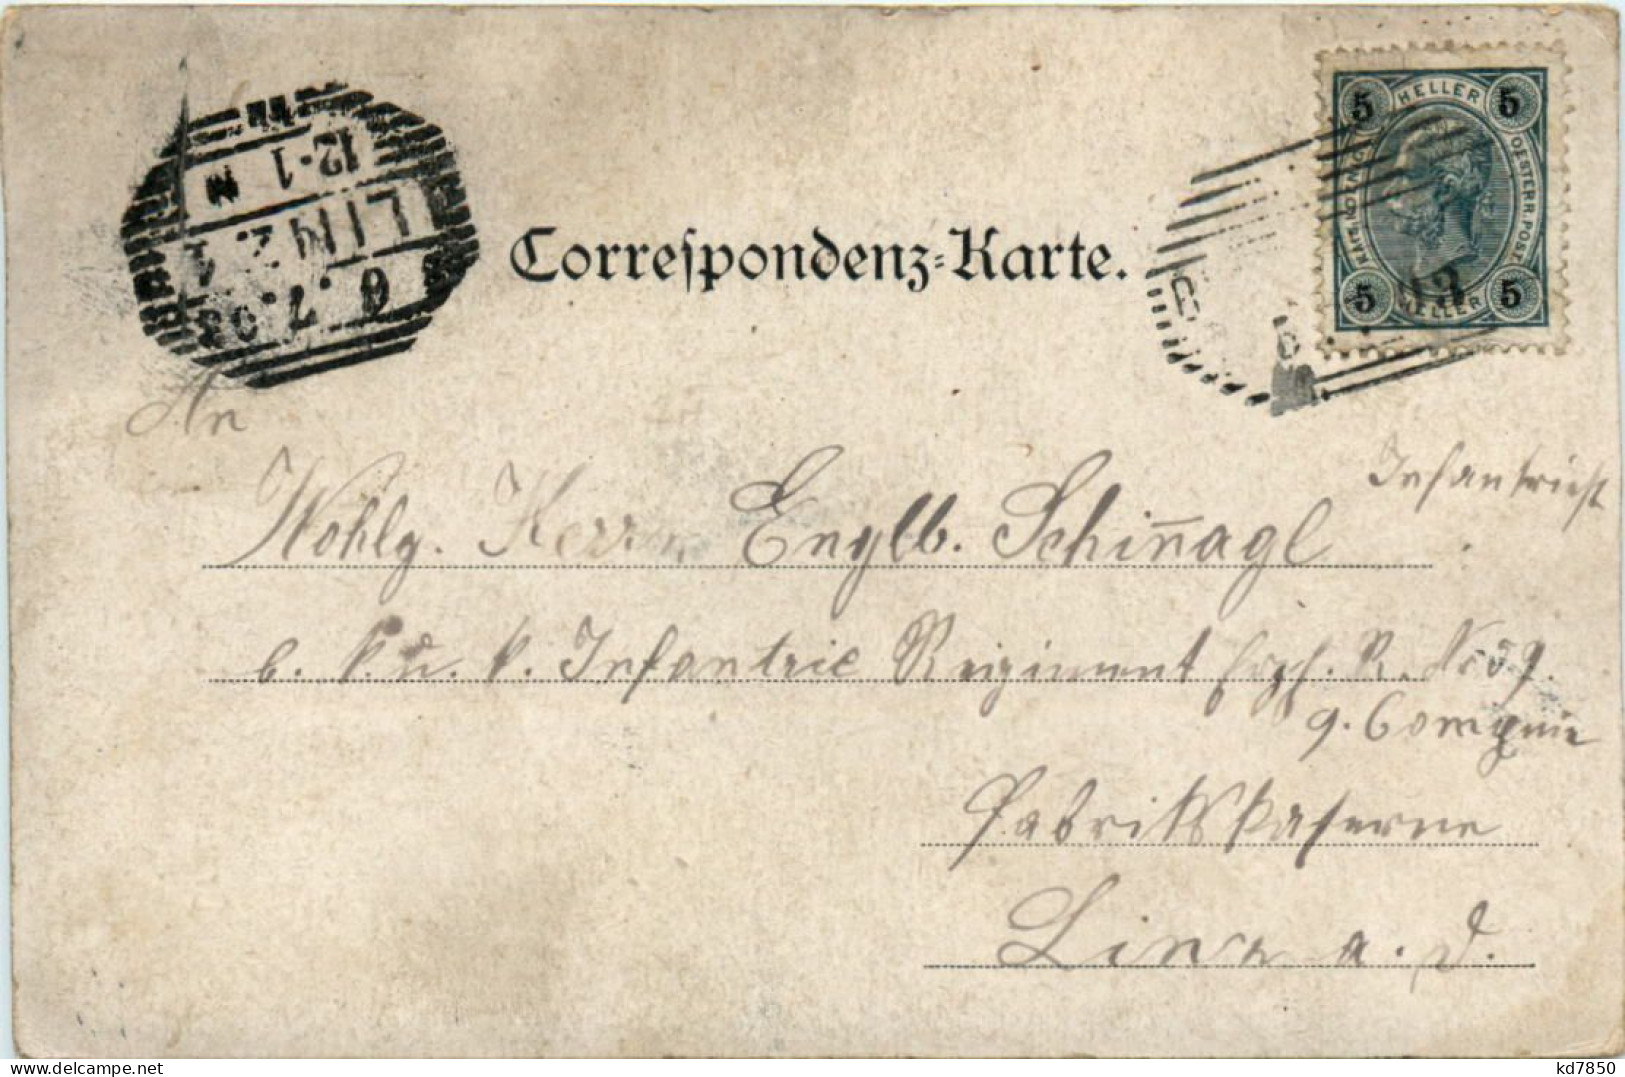 12-1 N
LINZ 2
6.7.03
Correspondenz-Karte.
5 HELLER 5
KAIS. KÖN. OESTERR. POST
5 HELLER 5
An
Infanterist
Wohlg. Herrn Englb. Schin̄agl
b. k. u. k. Infantrie Regiment Erzh. R. No 59.
9. Compnie
Fabrikskaserne
Linz a. D.
kd7850